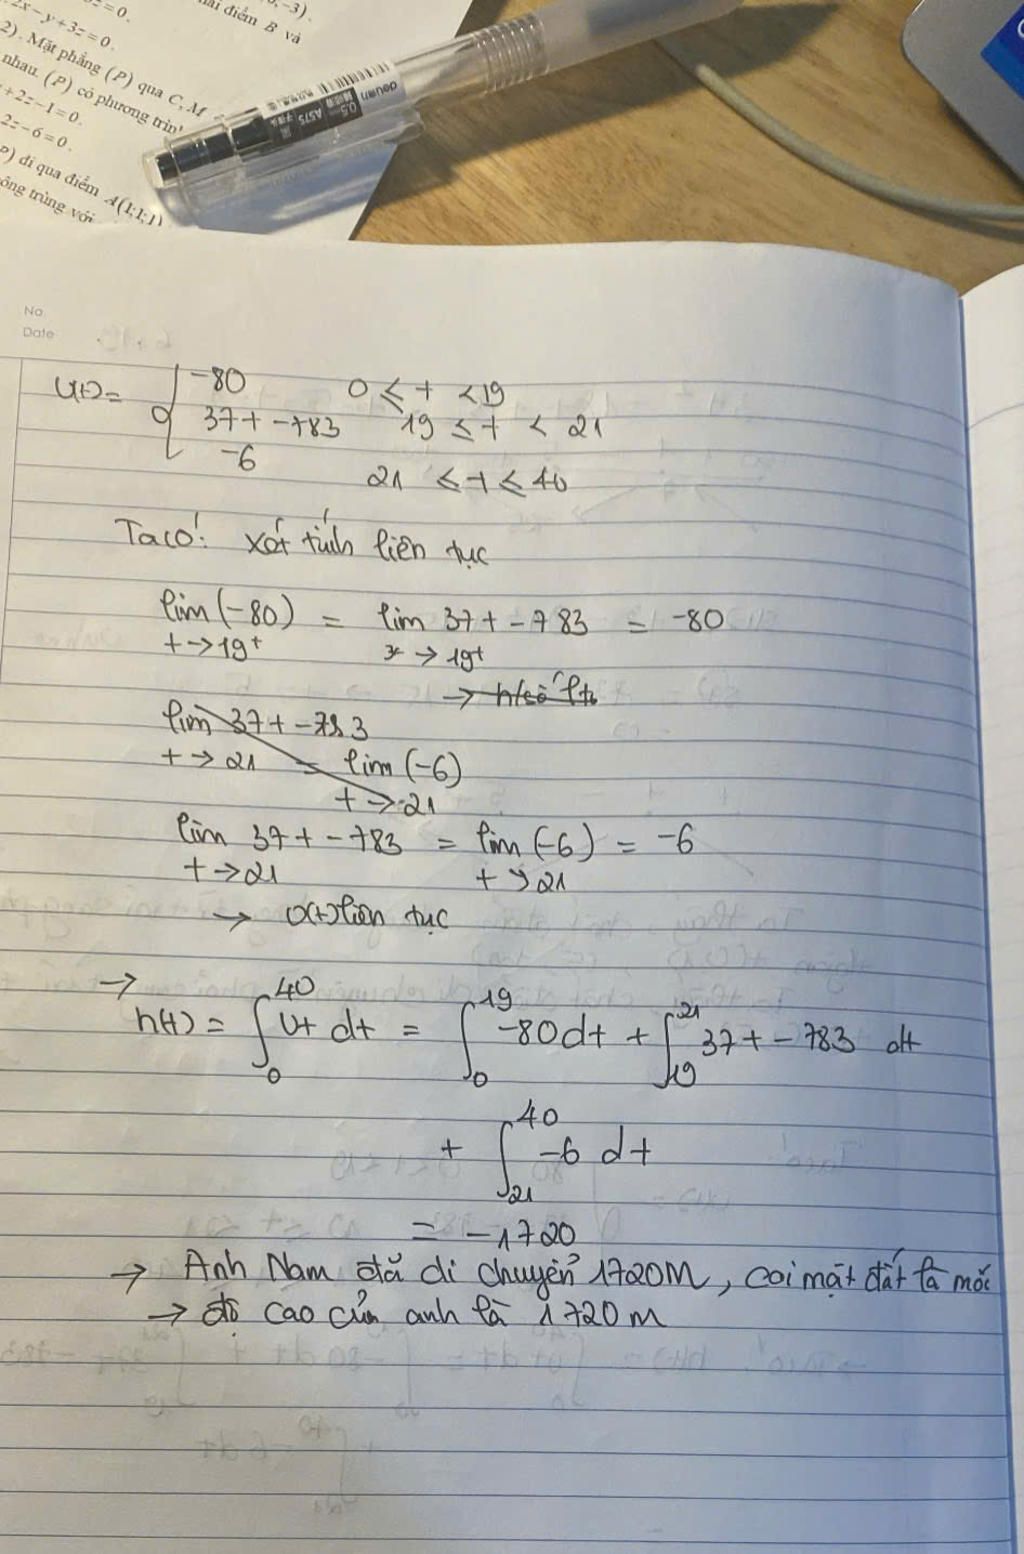 2x-y+3z=0.
2). Mặt phẳng (P) qua C, M
nhau. (P) có phương trìn
+2z-1=0.
2z-6=0.
P) đi qua điểm A(1;1;1)
ông trùng với
;-3).
hai điểm B và
deli
0.5
A575
No.
Date
v(t) = { -80 0 ≤ t < 19
37t - 783 19 ≤ t < 21
-6 21 ≤ t ≤ 40
Ta có: xét tính liên tục
lim (-80) = lim 37t - 783 = -80
t → 19+ x → 19+
→ h/số lto
lim 37t - 783
t → 21 = lim (-6)
t → 21
lim 37t - 783 = lim (-6) = -6
t → 21 t → 21
→ v(t) liên tục
→
h(t) = ∫₀⁴⁰ vt dt = ∫₀¹⁹ -80 dt + ∫₁₉²¹ 37t - 783 dt
+ ∫₂₁⁴⁰ -6 dt
= -1720
→ Anh Nam đã di chuyển 1720M, coi mặt đất là mốc
→ độ cao của anh là 1720m